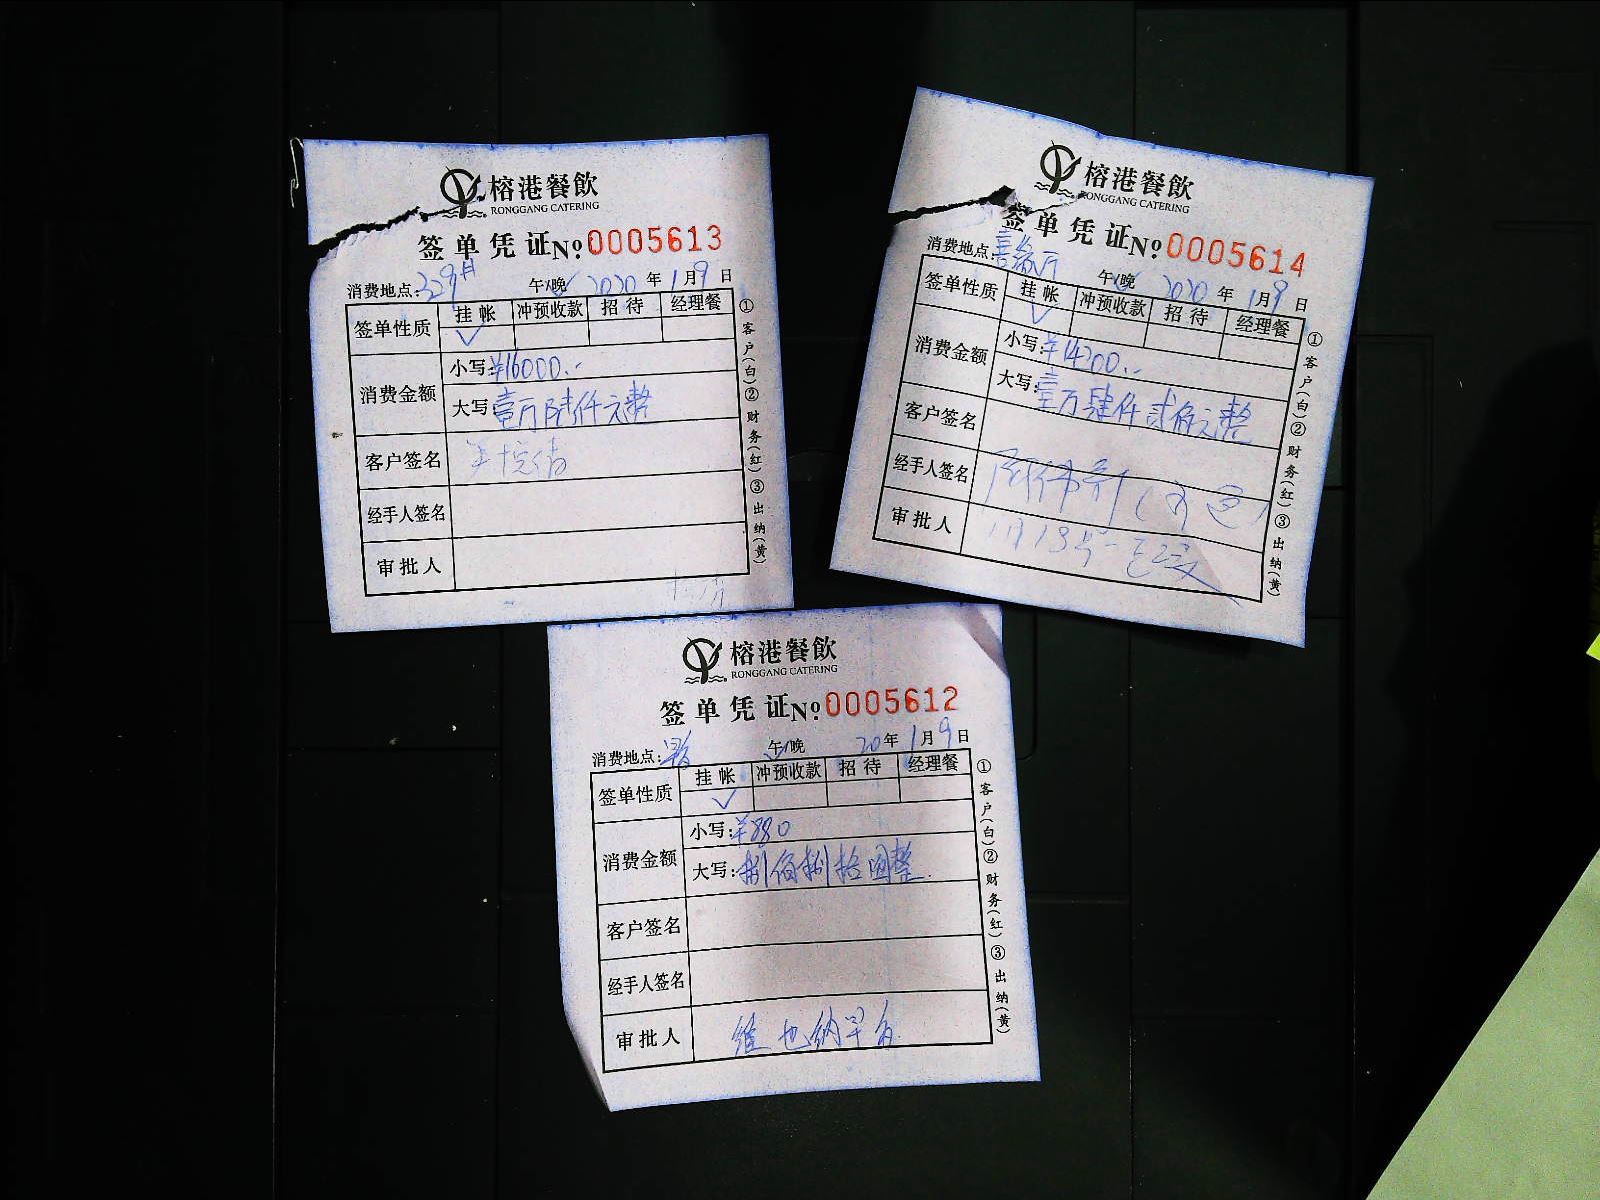 榕港餐飲
RONGGANG CATERING
签单凭证№0005613
消费地点: 午/晚 2020年1月9日
签单性质 挂帐 冲预收款 招待 经理餐
✓
消费金额 小写:¥16000.-
大写:壹万陆仟元整
客户签名
经手人签名
审批人
①客户(白)②财务(红)③出纳(黄)
榕港餐飲
RONGGANG CATERING
签单凭证№0005614
消费地点: 午/晚 2020年1月9日
签单性质 挂帐 冲预收款 招待 经理餐
✓
消费金额 小写:¥14200.-
大写:壹万肆仟贰佰元整
客户签名
经手人签名
审批人
①客户(白)②财务(红)③出纳(黄)
榕港餐飲
RONGGANG CATERING
签单凭证№0005612
消费地点: 午/晚 20年1月9日
签单性质 挂帐 冲预收款 招待 经理餐
✓
消费金额 小写:¥880
大写:捌佰捌拾圆整
客户签名
经手人签名
审批人 维也纳早
①客户(白)②财务(红)③出纳(黄)